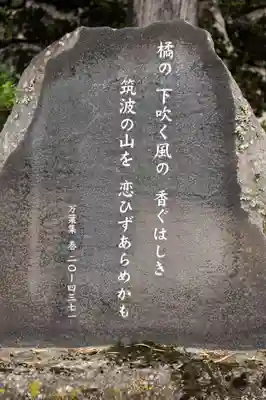 橘の 下吹く風の 香ぐはしき
筑波の山を 恋ひずあらめかも
万葉集 巻 二〇ー四三七一